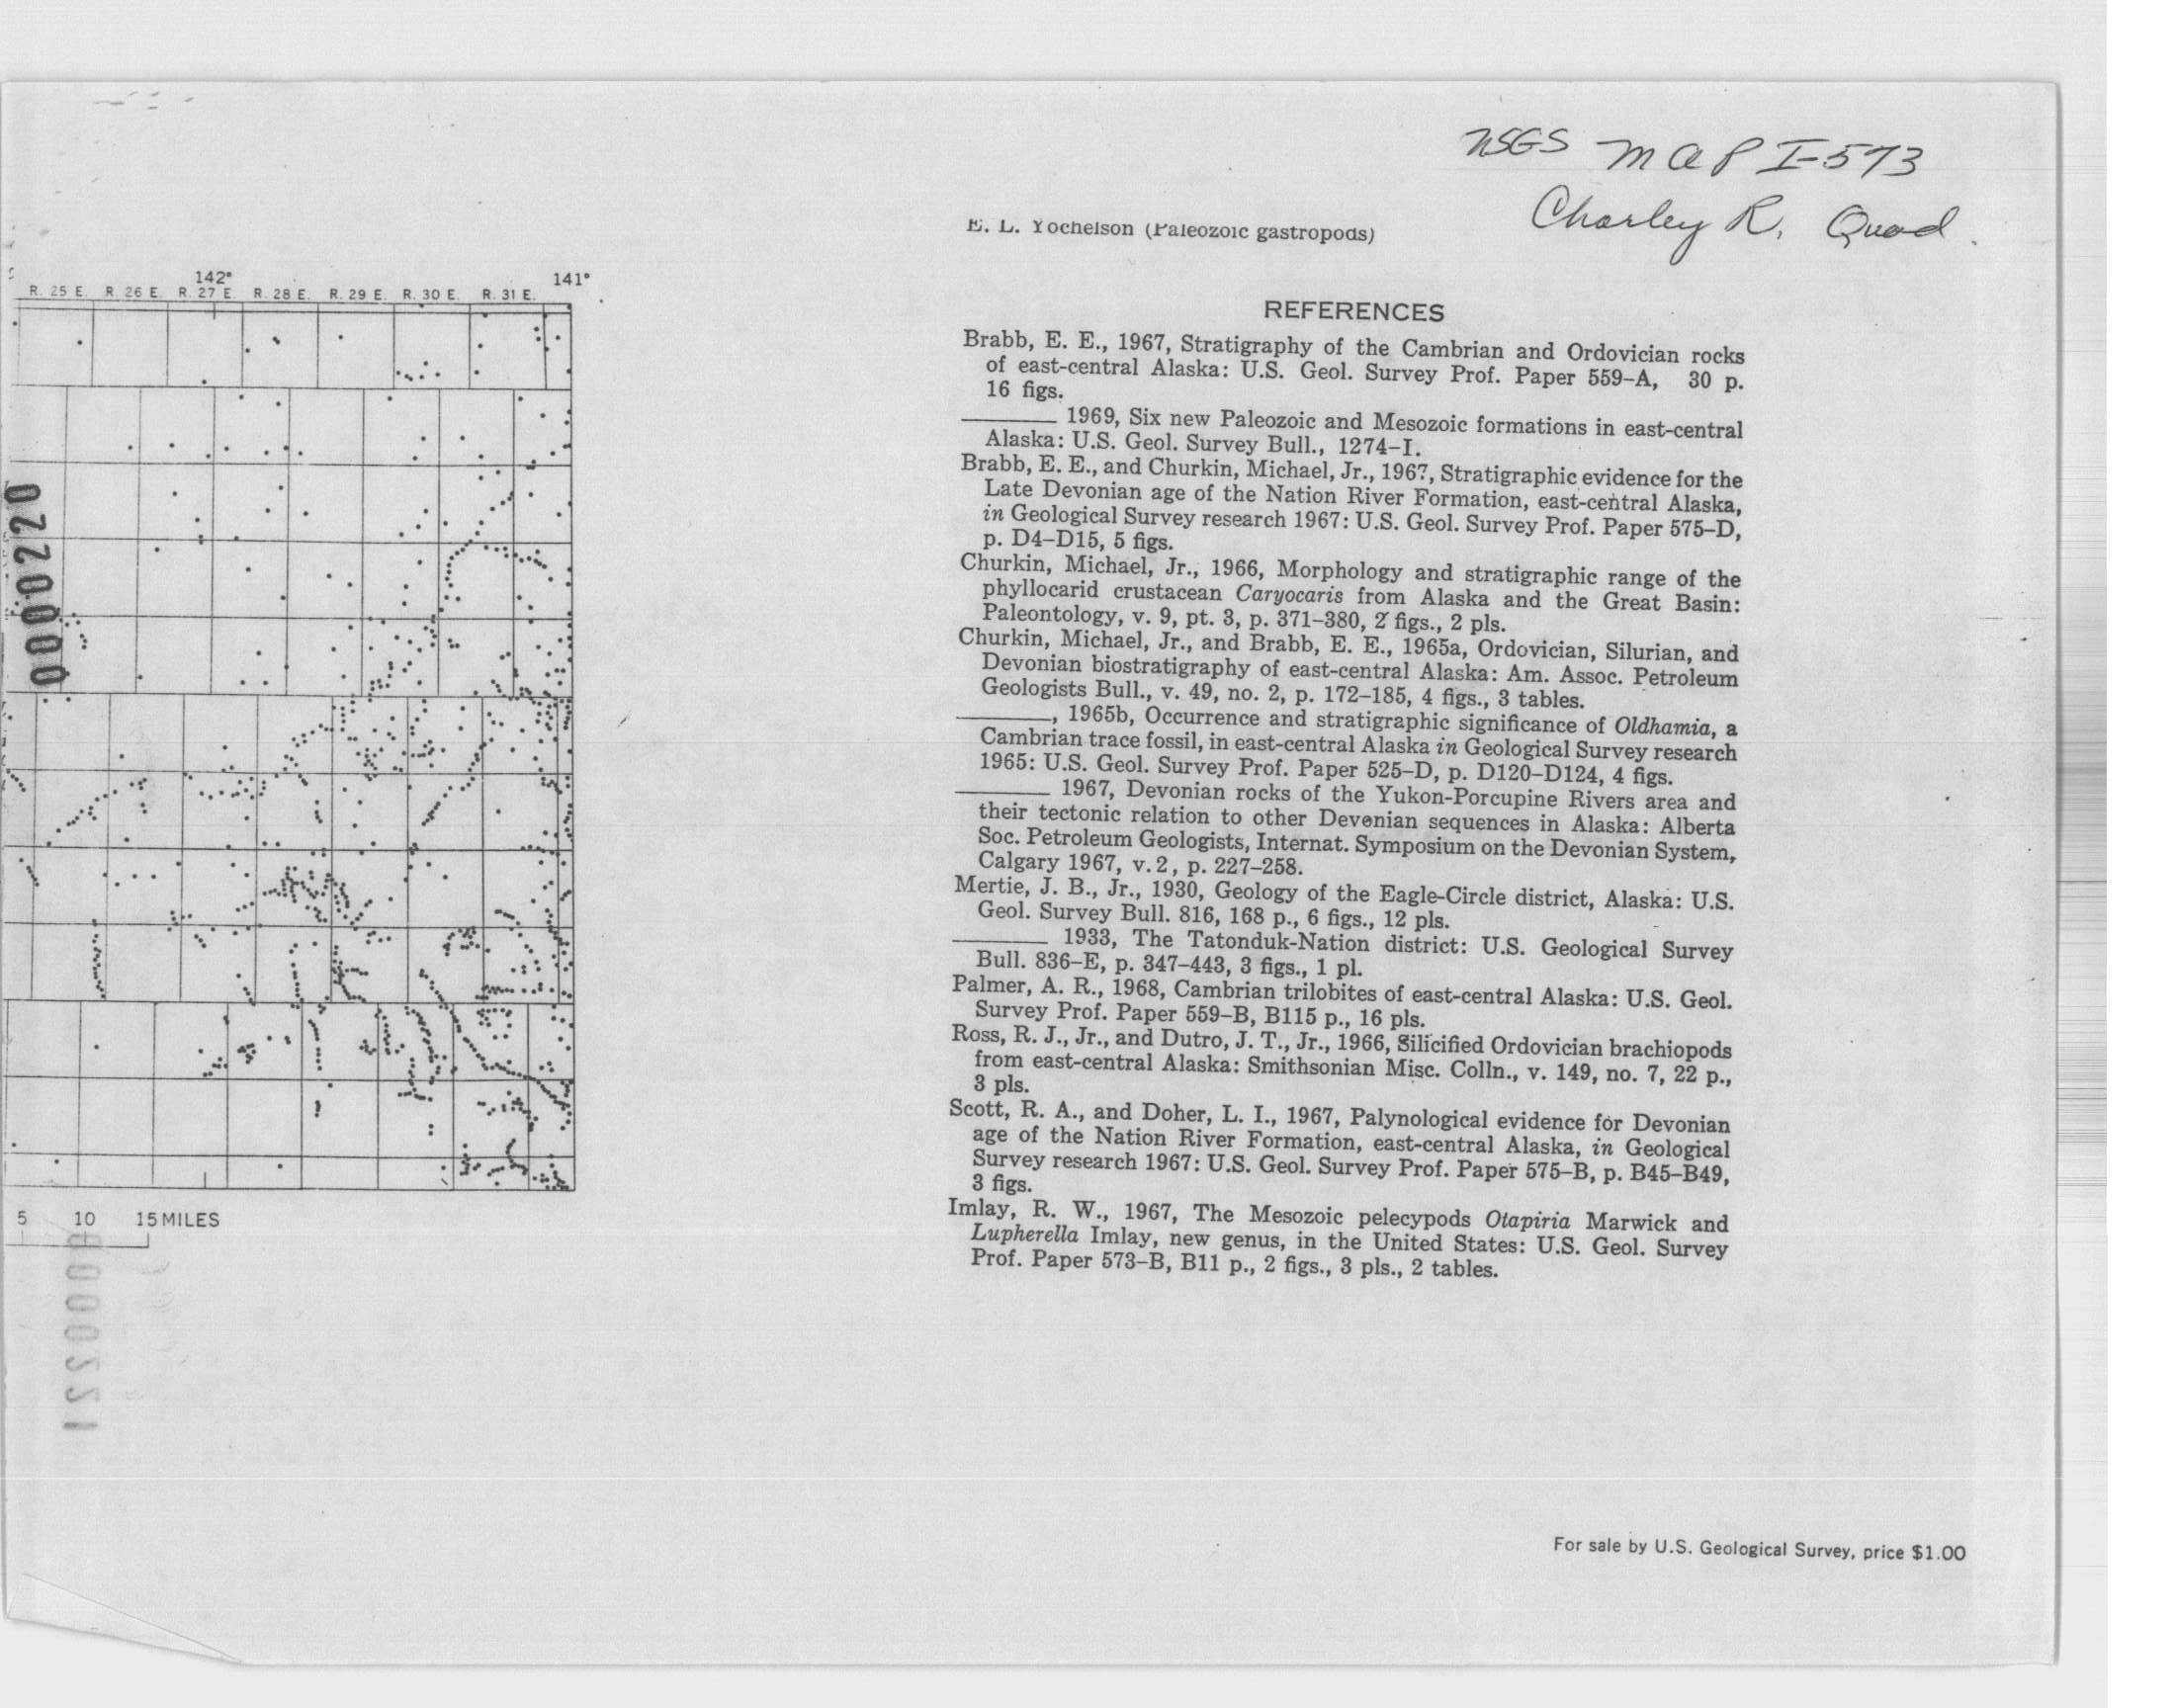 USGS MAP I-573
Charley R. Quad.
E. L. Yochelson (Paleozoic gastropods)
142° 141°
R. 25 E. R. 26 E. R. 27 E. R. 28 E. R. 29 E. R. 30 E. R. 31 E.
0000220
5 10 15 MILES
0000221
REFERENCES
Brabb, E. E., 1967, Stratigraphy of the Cambrian and Ordovician rocks
of east-central Alaska: U.S. Geol. Survey Prof. Paper 559–A, 30 p.
16 figs.
_______ 1969, Six new Paleozoic and Mesozoic formations in east-central
Alaska: U.S. Geol. Survey Bull., 1274–I.
Brabb, E. E., and Churkin, Michael, Jr., 1967, Stratigraphic evidence for the
Late Devonian age of the Nation River Formation, east-central Alaska,
in Geological Survey research 1967: U.S. Geol. Survey Prof. Paper 575–D,
p. D4–D15, 5 figs.
Churkin, Michael, Jr., 1966, Morphology and stratigraphic range of the
phyllocarid crustacean Caryocaris from Alaska and the Great Basin:
Paleontology, v. 9, pt. 3, p. 371–380, 2 figs., 2 pls.
Churkin, Michael, Jr., and Brabb, E. E., 1965a, Ordovician, Silurian, and
Devonian biostratigraphy of east-central Alaska: Am. Assoc. Petroleum
Geologists Bull., v. 49, no. 2, p. 172–185, 4 figs., 3 tables.
_______, 1965b, Occurrence and stratigraphic significance of Oldhamia, a
Cambrian trace fossil, in east-central Alaska in Geological Survey research
1965: U.S. Geol. Survey Prof. Paper 525–D, p. D120–D124, 4 figs.
_______ 1967, Devonian rocks of the Yukon-Porcupine Rivers area and
their tectonic relation to other Devonian sequences in Alaska: Alberta
Soc. Petroleum Geologists, Internat. Symposium on the Devonian System,
Calgary 1967, v. 2, p. 227–258.
Mertie, J. B., Jr., 1930, Geology of the Eagle-Circle district, Alaska: U.S.
Geol. Survey Bull. 816, 168 p., 6 figs., 12 pls.
_______ 1933, The Tatonduk-Nation district: U.S. Geological Survey
Bull. 836–E, p. 347–443, 3 figs., 1 pl.
Palmer, A. R., 1968, Cambrian trilobites of east-central Alaska: U.S. Geol.
Survey Prof. Paper 559–B, B115 p., 16 pls.
Ross, R. J., Jr., and Dutro, J. T., Jr., 1966, Silicified Ordovician brachiopods
from east-central Alaska: Smithsonian Misc. Colln., v. 149, no. 7, 22 p.,
3 pls.
Scott, R. A., and Doher, L. I., 1967, Palynological evidence for Devonian
age of the Nation River Formation, east-central Alaska, in Geological
Survey research 1967: U.S. Geol. Survey Prof. Paper 575–B, p. B45–B49,
3 figs.
Imlay, R. W., 1967, The Mesozoic pelecypods Otapiria Marwick and
Lupherella Imlay, new genus, in the United States: U.S. Geol. Survey
Prof. Paper 573–B, B11 p., 2 figs., 3 pls., 2 tables.
For sale by U.S. Geological Survey, price $1.00